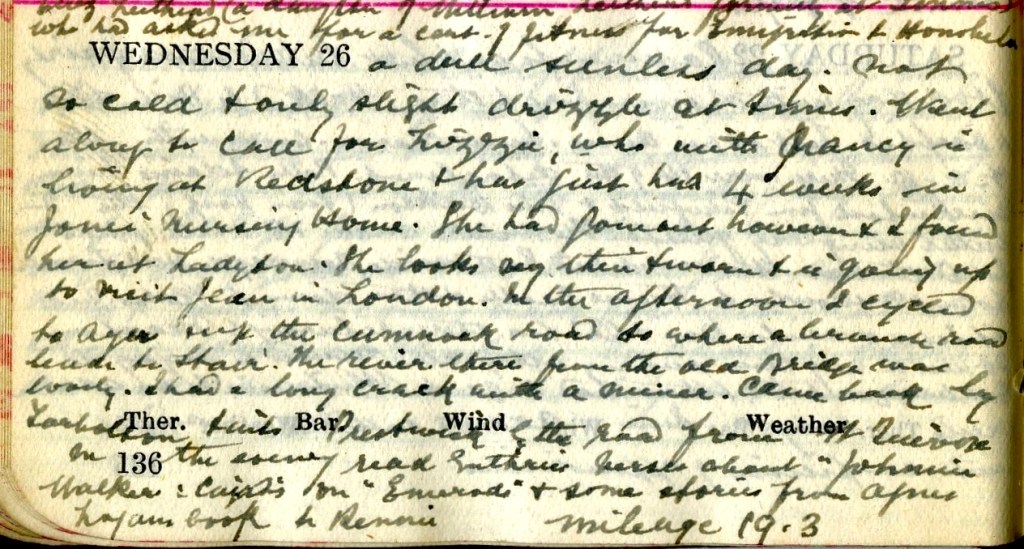 who had asked me for a cert. of fitness for Emigration to Honolulu
WEDNESDAY 26 a dull sunless day. Not
so cold & only slight drizzle at times. Went
along to call for Lizzie, who with Nancy is
living at Redstone & has just had 4 weeks in
Jones Nursing Home. She had gone out however & I found
her at Ladyton. She looks very thin & worn & is going up
to visit Jean in London. In the afternoon I cycled
to Ayr & up the Cumnock road to where a branch road
leads to Stair. The river there from the old Bridge was
lovely. I had a long crack with a miner. Came back by
Tarbolton, Prestwick & the road from St Quivox
Ther. Bar. Wind Weather
In the evening read Guthrie's verses about "Johnnie
136
Walker: on "Emerods" & some stories from Agnes
Logan's book to Rennie mileage 19.3